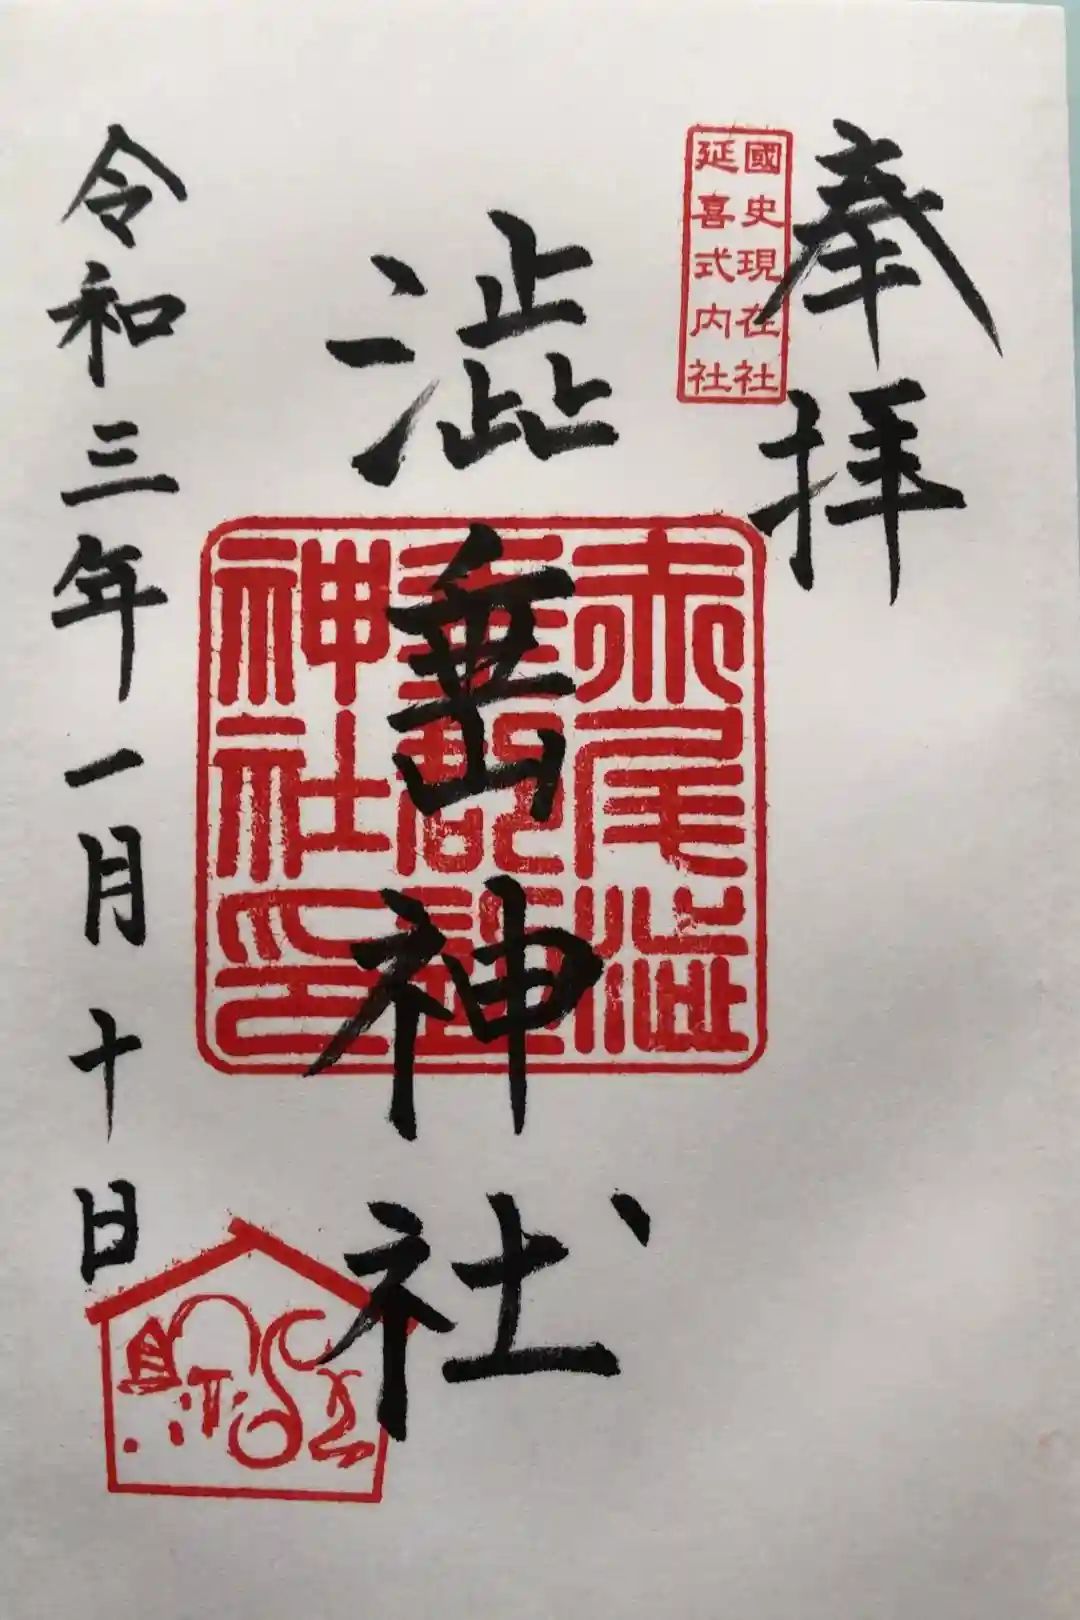 奉拝
國史現在社
延喜式内社
澁垂神社
赤尾澁
垂郡邊
神社印
令和三年一月十日